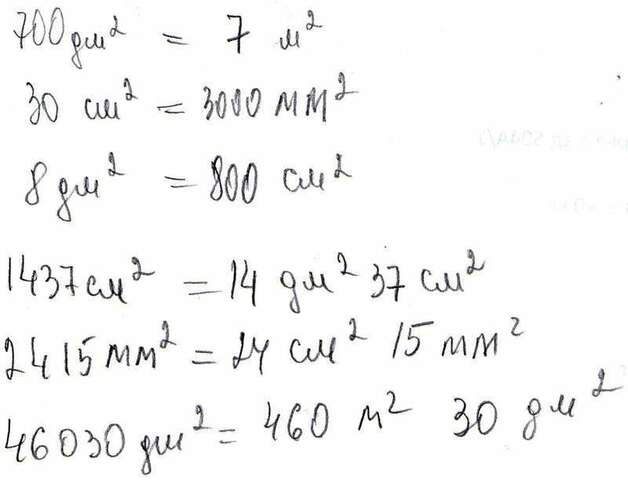 700 дм² = 7 м²
30 см² = 3000 мм²
8 дм² = 800 см²
1437 см² = 14 дм² 37 см²
2415 мм² = 24 см² 15 мм²
46030 дм² = 460 м² 30 дм²